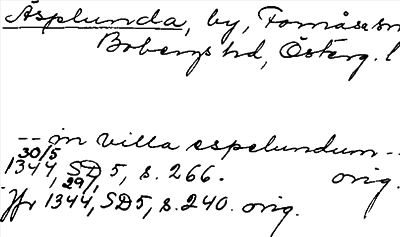 Äsplunda, by, Fornåsa sn
Bobergs hd, Österg. l
-- in villa espelundum --
30/5
1344, SD 5, s. 266. orig.
29/
Jfr 1344, SD5, s. 240. orig.